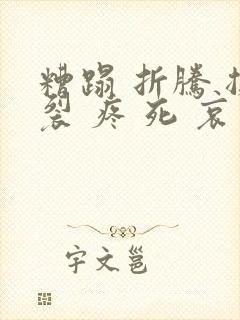 糟蹋 折騰
裂 疼 死 哀
宇文邕